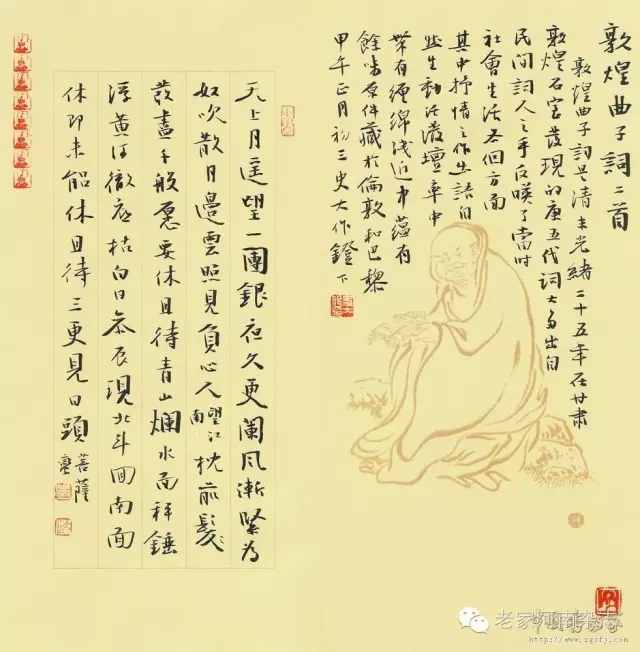 敦煌曲子詞二首
敦煌曲子詞是清末光緒二十五年在甘肅
敦煌石室發現的唐五代词大多出自
民间词人之手反映了當时
社會生活各個方面
其中抒情之作出語自
然生動活潑壇率中
帶有纏綿浅近中蕴有
餘味原件藏於倫敦和巴黎
甲午正月初三史大作鐙下
天上月遥望一團銀夜久更闌风漸緊為
奴吹散月邊雲照見負心人望江南枕前髮
發盡千般愿要休且待青山爛水面秤錘
浮黄河徹底枯白日参辰現北斗回南面
休即未能休且待三更見日頭菩薩蠻
http://www.zgsfj.com